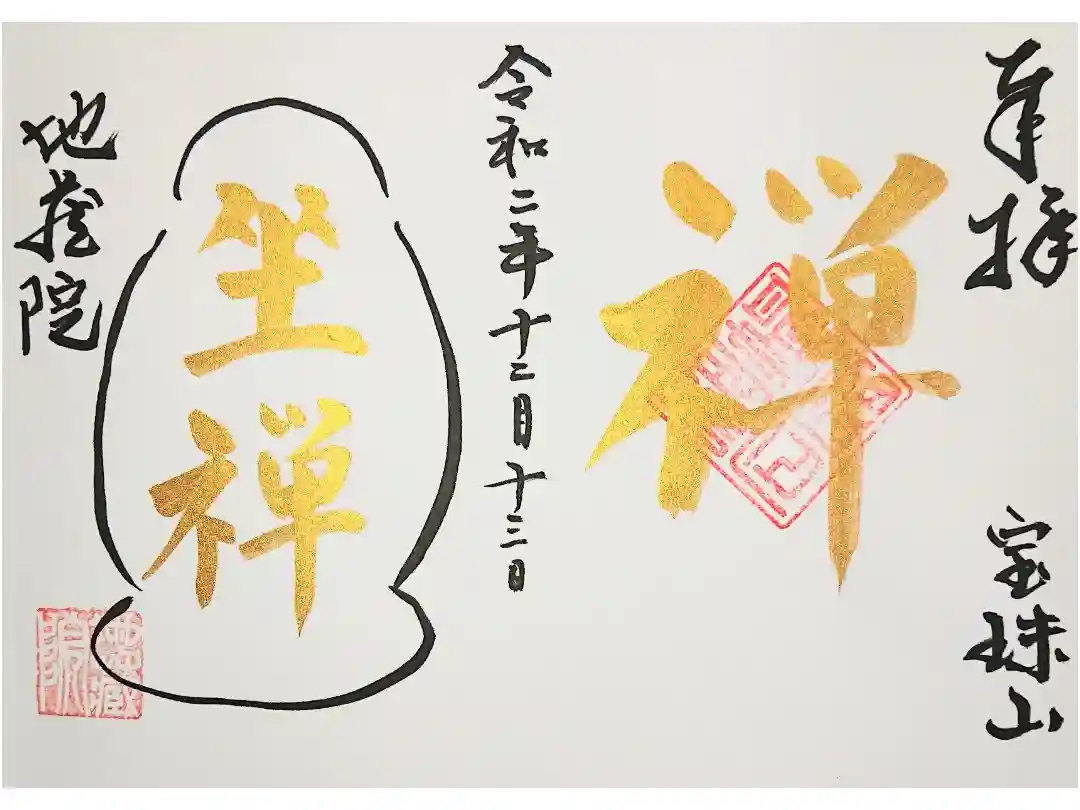 奉拝
宝珠山
禅
令和二年十二月十三日
坐禅
地蔵院
地蔵院